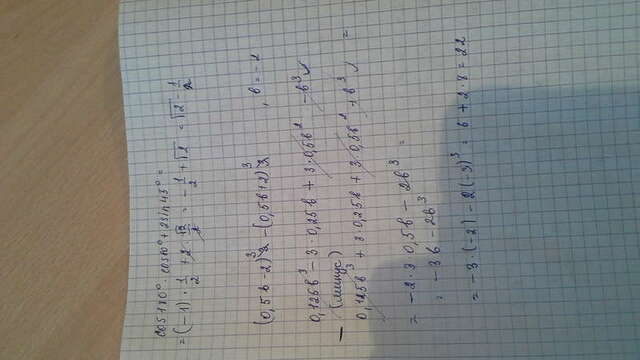 cos180° · cos60° + 2sin45° =
= (-1) · 1/2 + 2 · √2/2 = - 1/2 + √2 = √2 - 1/2
(0,5b-2)³ - (0,5b+2)³ , b = -2
0,125b³ - 3·0,25b + 3·0,5b² - b³
- (минус)
0,125b³ + 3·0,25b + 3·0,5b² + b³ =
= -2·3·0,5b - 2b³ =
= -3b - 2b³
= -3·(-2) - 2(-2)³ = 6 + 2·8 = 22